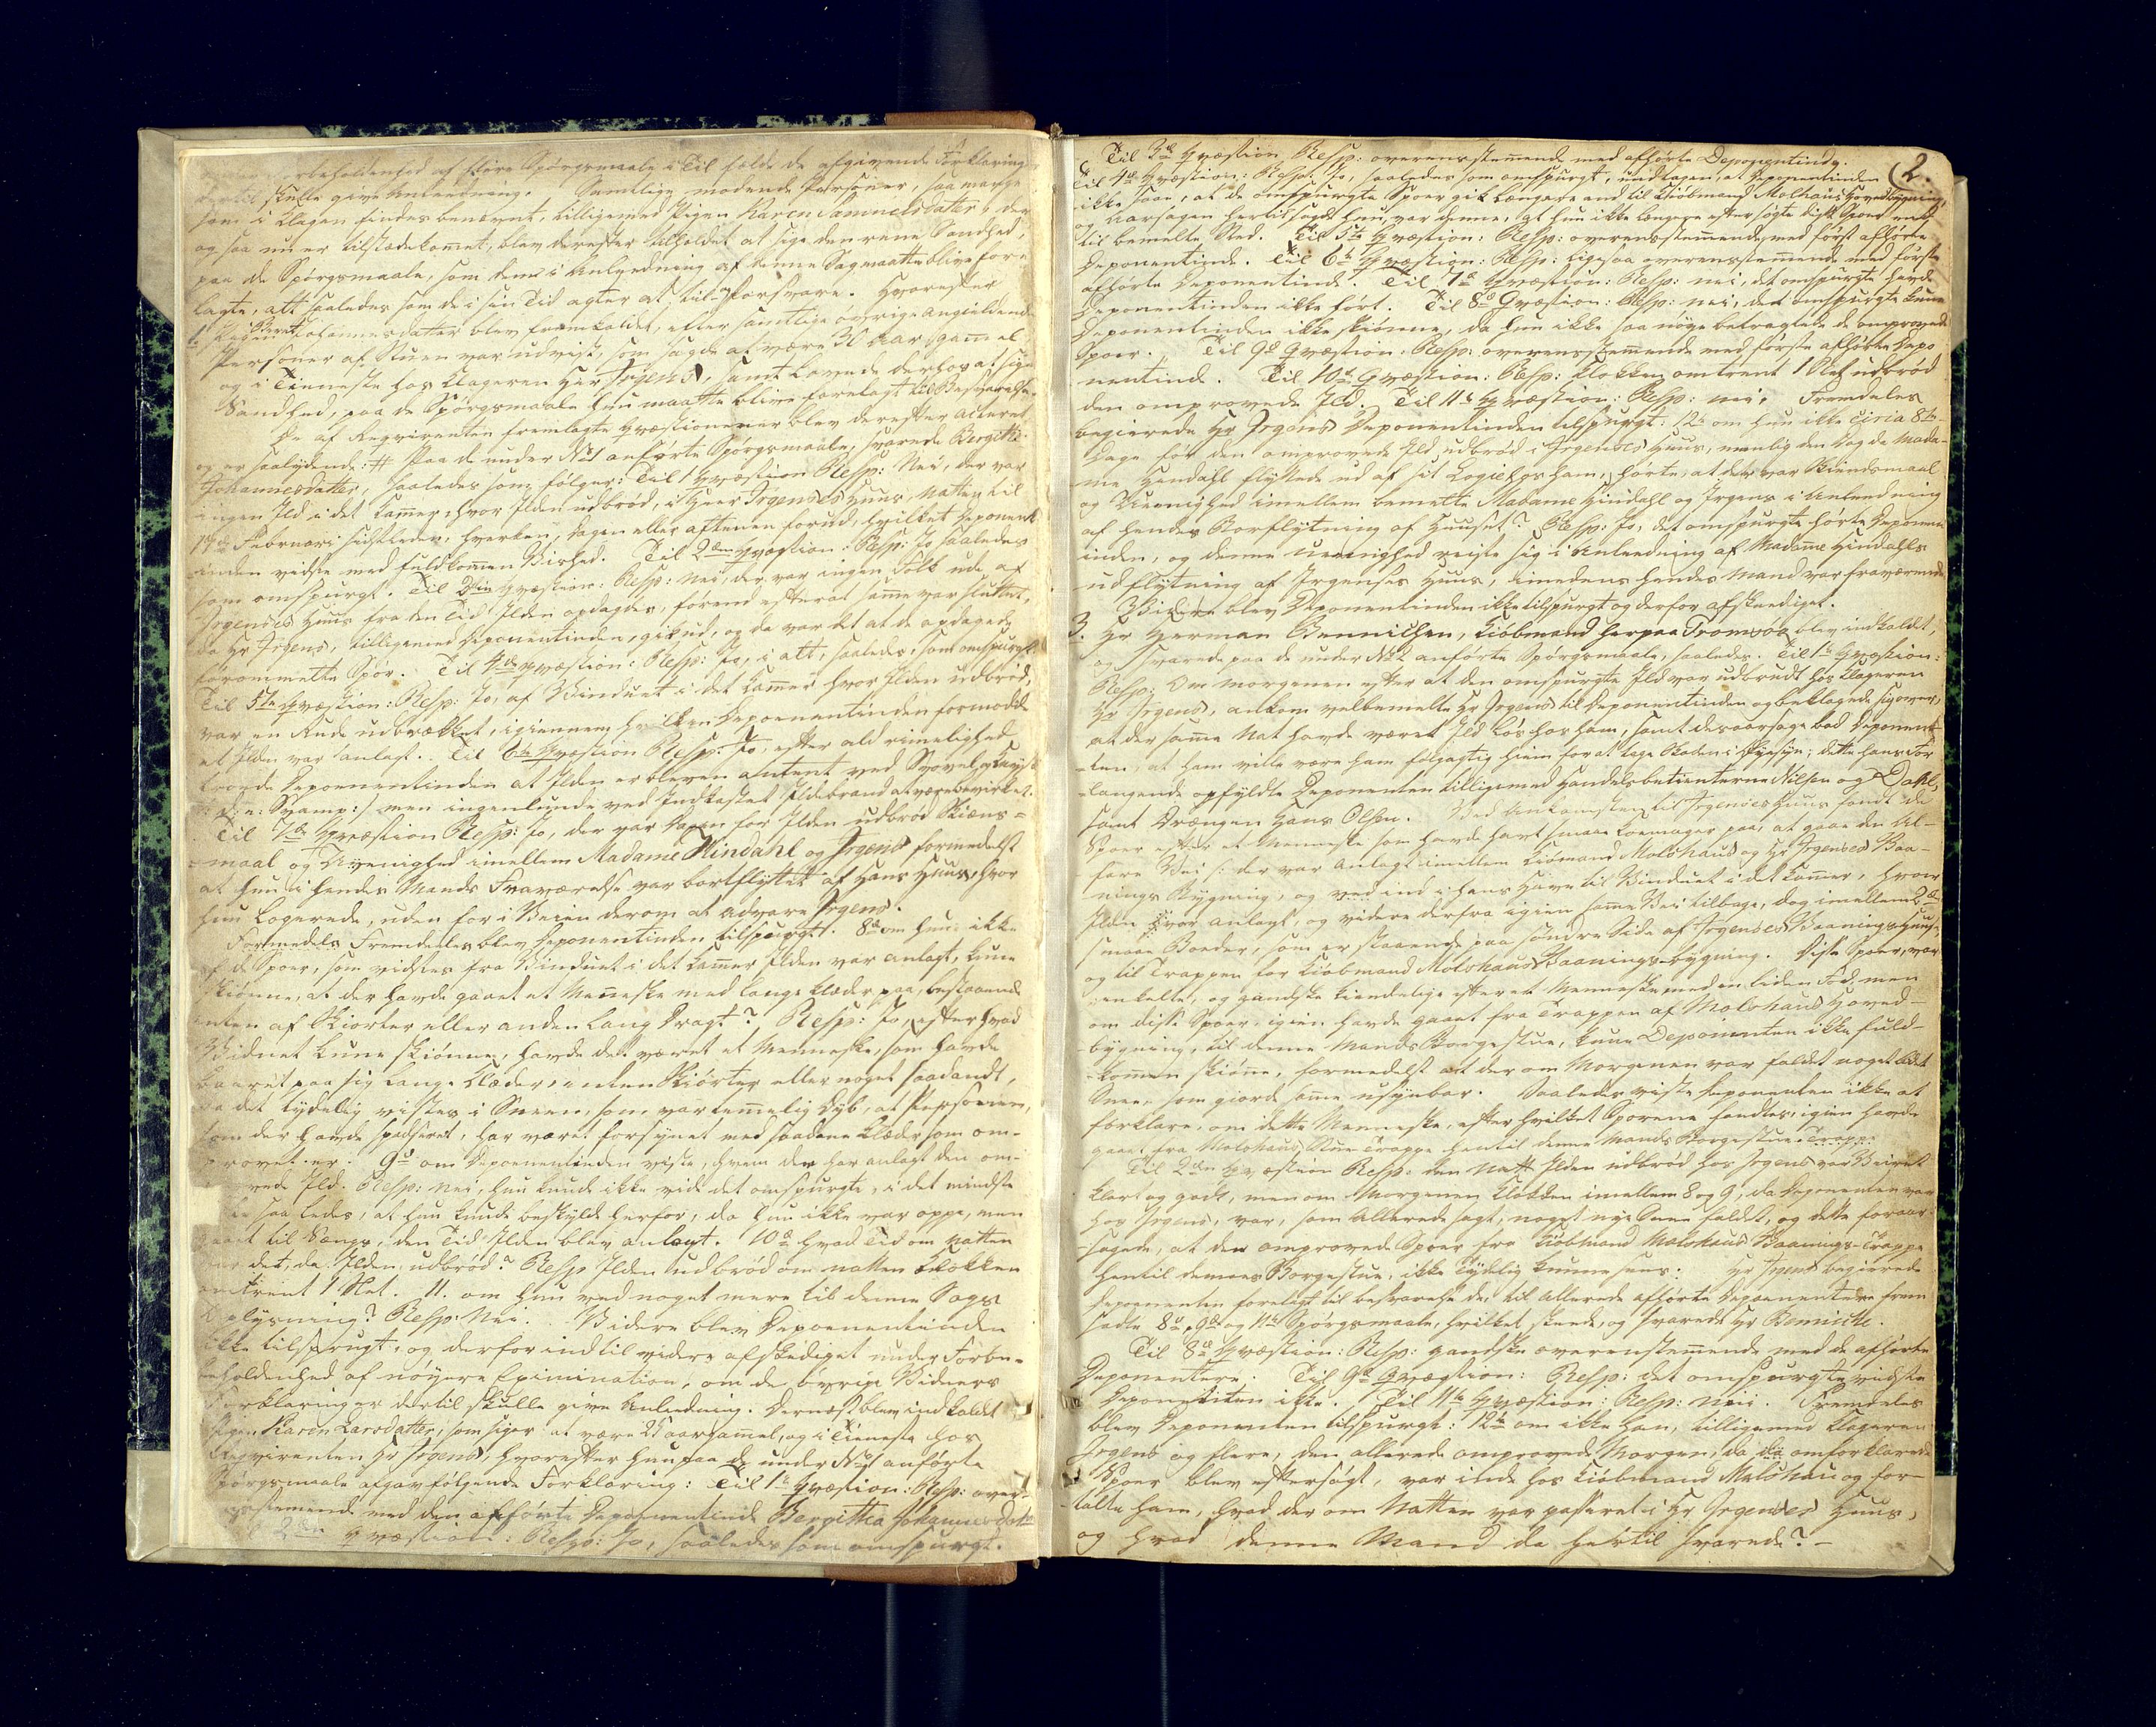 forbeholdenhed af flere Spørgsmaale i Tilfælde de afgivende Forklaringer
dertil skulle give Anledning. Samtlige mødende Personer, saa mange
som i Klagen findes benævnt, tilligemed Pigen Karen Samuelsdatter, der
og saa nu er tilstædekommet, blev derefter tilholdet at sige den rene Sandhed,
paa de Spørgsmaale, som dem i Anledning af denne Sag maatte blive fore
lagte, alt saaledes som de i sin Tid agter at forsvare. Hvorefter
1. Pigen Berret Johannesdatter blev fremkaldet, efter samtlige øvrige angieldende
Personer af Stuen var udvist, som sagde at være 30 Aar gammel
og i Tieneste hos Klageren Herr Jrgens, samt lovede derhos at sige
Sandhed, paa de Spørgsmaale hun maatte blive forelagt til Besvarelse.
De af Reqvirenten fremlagte Qvæstioner blev derefter acteret
og er saalydende: # Paa de under No 1 anførte Spørgsmaale, svarede Bergitte
Johannesdatter, saaledes som følger: Til 1 Qvæstion Resp: Nei, der var
ingen Jld i det Kammer, hvor Jlden udbrød, i Herr Jrgenses Huus, Natten til
Februari sidstleden, hverken Dagen eller Aftenen forud, hvilket Deponent
inden vidste med fuldkommen Vished. Til 2den Qvæstion: Resp: Jo saaledes
som omspurgt. Til 3die Qvæstion: Resp: Nei, der var ingen Folk ude af
Jrgenses Huus fra den Tid Jlden opdagedes, førend efterat samme var sluttet,
da Hr Jrgens, tilligemed Deponentinden, gik ud, og da var det at de opdagede
førommelte Spor. Til 4de Qvæstion: Resp: Jo, i alt, saaledes som omspurgt.
Til 5te Qvæstion: Resp: Jo, af Vinduet i det Kammer hvor Jlden udbrød,
var en Rude udbrækket, igiennem hvilken Deponentinden formodede
at Jlden var anlagt. Til 6te Qvæstion Resp: Jo, efter ald rimelighed
troede Deponentinden at Jlden er bleven antent ved Svovel og Knysk
Svamp :/ men ingenlunde ved Jndkastet Jldebrand at være bevirket.
Til 7de Qvæstion Resp: Jo, der var Dagen før Jlden udbrød Skiens-
maal og Uenighed imellem Madame Hindahl og Jrgens formedelst
at hun i hendes Mands Fraværelse var bortflyttet af Hans Huus, hvor
hun Logerede, uden for i Veien derom at advare Jrgens.
Formedels Fremdeeles blev Deponentinden tilspurgt: 8de om hun ikke
af de Spoer, som vidstes fra Vinduet i det Kammer Jlden var anlagt, kune
skiønne, at der havde gaaet et Menneske med lange Klæder paa, bestaaende
enten af Skiorter eller anden lang Dragt? Resp: Jo, efter hvad
Vidnet kune skiønne, havde det været et Menneske, som havde
baaret paa sig lange Klæder, enten Skiørter eller noget saadandt,
da det tydelig vistes i Sneen, som var temmelig dyb, at Personen,
som der havde spadseret, har været forsynet med saadane Klæder som om-
prøvet er. 9de om Deponentinden viste, hvem der har anlagt den om-
prøvede Jld. Resp: nei, hun kunde ikke vide det omspurgte, i det mindste
ikke saaledes, at hun kunde beskylde herfor, da hun ikke var oppe, men
gaaet til Sengs, den Tid Jlden blev anlagt. 10de hvad Tid om Natten
var det, da Jlden udbrød? Resp Jlden udbrød om natten Klokken
omtrent 1 Slet. 11. om hun ved noget mere til denne Sags
Oplysning? Resp: Nei. Videre blev Deponentinden
ikke tilspurgt, og derfor indtil videre afskediget under Forbe-
holdenhed af nøyere Eximination, om de øvrige Vidners
Forklaringer dertil skulle give Anledning. Dernæst blev indkaldt
Pigen Karen Larsdatter, som siger at være 25 aar gammel, og i Tieneste hos
Reqvirenten Hr Jrgens, hvorefter hun paa de under No 1 anførte
Spørgsmaale afgav følgende Forklaring: Til 1te Qvæstion: Resp: over-
eensstemmende med den afhørte Deponentinde Bergitha Johannesdatter
Til 2den Qvæstion: Resp: Jo, saaledes som omspurgt.
2.
Til 3de Qvæstion Resp: overensstemmende med afhørte Deponentinde.
Til 4de Qvæstion: Resp: Jo, saaledes som omspurgt, undtagen, at Deponentinden
ikke saae, at de omspurgte Spoer gik længere end til Kiøbmand Molshaus Hovedbygning,
og Aarsagen hertil sagde hun, var denne, at hun ikke længere eftersøgte disse Spoer end
til bemelte Sted. Til 5te Qvæstion: Resp: overensstemmende med først afhørte
Deponentinde. Til 6te Qvæstion: Resp: ligesaa overensstemmende med første
afhørte Deponentinde. Til 7de Qvæstion: Resp: nei, det omspurgte havde
Deponentinden ikke hørt. Til 8de Qvæstion: Resp: nei, det omspurgte kune
Deponentinden ikke skiønne, da hun ikke saa nøye betragtede de omprøvede
Spoer. Til 9de Qvæstion: Resp: overensstemmende med første afhørte Depo
nentinde. Til 10de Qvæstion: Resp: Klokken omtrent 1 Slet udbrød
den omprøvede Jld. Til 11te Qvæstion: Resp: nei. Fremdeles
begierede Hr Jrgens Deponentinden tilspurgt: 12te om hun ikke circa 8te
Dage før den omprøvede Jld udbrød i Jrgenses Huus, nemlig den Dag da Mada-
me Hindahl flyttede ud af sit Logie hos ham, hørte, at der var Skiendsmaal
og Uenighed imellem bemelte Madame Hindahl og Jrgens i Anledning
af hendes Borflytning af Huuset? Resp: Jo, det omspurgte hørte Deponent
inden, og denne Uenighed reiste sig i Anledning af Madame Hindahls
udflytning af Jrgenses Huus, imedens hendes Mand var fraværende
Videre blev Deponentinden ikke tilspurgt og derfor afskediget.
3. Hr Herman Bennichen, Kiøbmand her paa Tromsøe blev indkaldt,
og svarede paa de under No 2 anførte Spørgsmaale, saaledes. Til 1te Qvæstion:
Resp: Om Morgenen efter at den omspurgte Jld var udbrudt hos Klageren
Hr Jrgens, ankom velbemelte Hr Jrgens til Deponentinden og beklagede sig over,
at der samme Nat havde været Jld løs hos ham, samt desaarsage bad Deponen-
ten, at han ville være ham følgagtig hiem for at tage Skaden i Øyesyn; dette hans For
-langende opfyldte Deponenten tilligemed Handelsbetienterne Nilsen og Dahl,
samt Drengen Hans Olsen. Ved Ankomsten til Jrgenses Huus fandt de
Spoer efter et Menneske som havde havt smaae Komager paa, at gaae den Al-
fare Vei /: der var anlagt imellem Kiøbmand Molshaus og Hr Jrgenses Baa-
nings Bygning, og ved ind i hans Have til Vinduet i det Kammer, hvor
Jlden var anlagt, og videre derfra igien samme Vei tilbage, dog imellem 2de
smaae Boeder, som er staaende paa søndre Side af Jrgenses Baaningshuus,
og til Trappen for Kiøbmand Molshaus Baanings-bygning. Disse Spoer, var
enkelte, og gandske kiendelige efter et Menneske med en liden Fod, men
om disse Spoer igien havde gaaet fra Trappen af Molshaus Hoved-
bygning, til denne Mands Borgestue, kune Deponenten ikke fuld-
kommen skiønne, formedelst at der om Morgenen var faldet noget lidet
Snee, som giorde samme usynbar. Saaledes viste Deponenten ikke at
forklare, om dette Menneske, efter hvilket Sporene fandtes, igien havde
gaaet fra Molshaus Stue Trappe hentil denne Mands Borgestue-Trapp:
Til 2den Qvæstion Resp: den Natt Jlden udbrød hos Jrgens var Veiret
klart og godt, men om Morgenen Klokken imellem 8 og 9, da Deponenten var
hos Jrgens, var, som Allerede sagt, noget nye Snee faldet, og dette foraar-
sagede, at den omprøvede Spoer fra Kiøbmand Molshaus Baanings-Trappe
hentil dennes Borgestue, ikke tydelig kunne sees. Hr Jrgens begierede
Deponenten forelagt til besvarelse de, til allerede afhørte Deponentinder frem
satte 8de, 9de og 11te Spørgsmaale, hvilket skeede, og svarede Hr Bennicke.
Til 8de Qvæstion: Resp: gandske overensstemmende med de afhørte
Deponentere. Til 9de Qvæstion: Resp: det omspurgte vidste
Deponenten ikke. Til 11te Qvæstion: Resp: Nei. Fremdeles
blev Deponenten tilspurgt: 12te om ikke han, tilligemed Klageren
Jrgens og flere, den allerede omprøvede Morgen, da de omforklarede
Spoer blev eftersøgt, var inde hos Kiøbmand Molshau og for-
talte ham, hvad der om Natten var passeret i Hr Jrgenses Huus,
og hvad denne Mand da hertil svarede? -